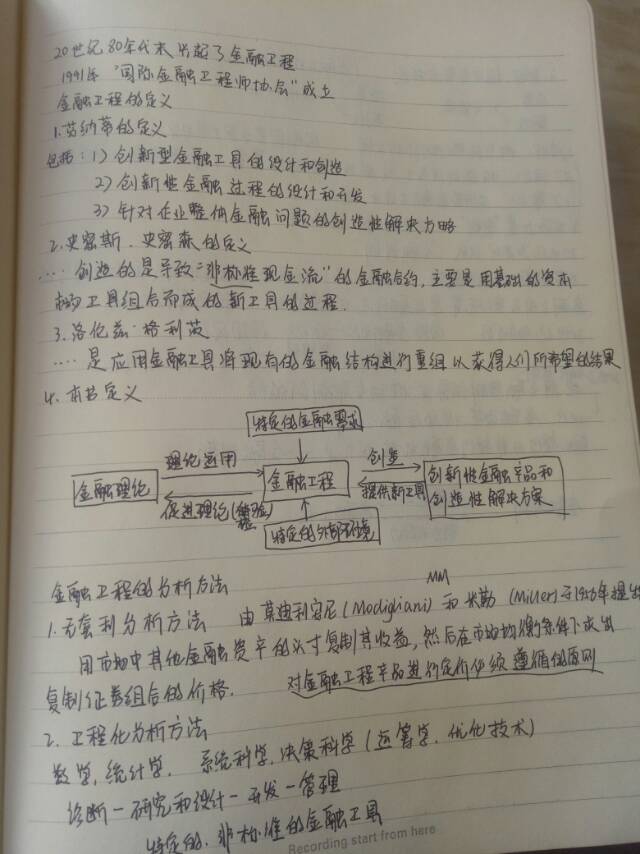 20世纪80年代末出起了金融工程
1991年"国际金融工程师协会"成立
金融工程的定义
1.芬纳蒂的定义
包括:1)创新型金融工具的设计和创造
2)创新性金融过程的设计和开发
3)针对企业整体金融问题的创造性解决方略
2.史密斯.史密森的定义
....创造的是导致"非标准现金流"的金融合约,主要是用基础的资本
市场工具组合而成的新工具的过程.
3.洛伦兹·格利茨
....是应用金融工具将现有的金融结构进行重组以获得人们所希望的结果
4.本书定义
特定的金融需求
理论运用
创造
金融理论
金融工程
创新性金融产品和
创造性解决方案
促进理论
提供新工具
特定的外部环境
金融工程的分析方法
MM
1.无套利分析方法 由莫迪利安尼(Modigliani)和米勒(Miller)于1956年提出
用市场中其他金融资产的头寸复制其收益,然后在市场均衡的条件下求出
复制证券组合的价格. 对金融工程产品进行定价必须遵循的原则
2.工程化分析方法
数学,统计学, 系统科学,决策科学(运筹学.优化技术)
诊断-研究和设计-开发-管理
特定的.非标准的金融工具
Recording start from here